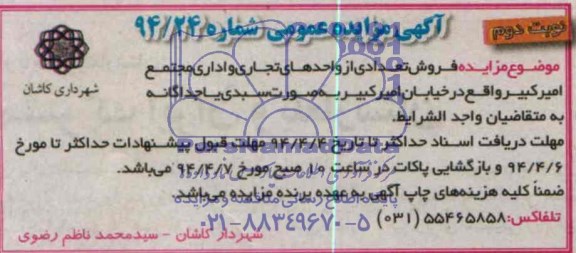 نوبت دوم
آگهی مزایده عمومی شماره ۹۴/۲۴
شهرداری کاشان
موضوع مزایده فروش تعدادی از واحدهای تجاری و اداری مجتمع
امیرکبیر واقع در خیابان امیرکبیر به صورت سبدی یا جداگانه
به متقاضیان واجد الشرایط.
مهلت دریافت اسناد حداکثر تا تاریخ ۹۴/۴/۴ مهلت قبول پیشنهادات حداکثر تا مورخ
۹۴/۴/۶ و بازگشایی پاکات در ساعت ۱۰ صبح مورخ ۹۴/۴/۷ می‌باشد.
ضمناً کلیه هزینه‌های چاپ آگهی به عهده برنده مزایده می‌باشد.
تلفاکس: ۵۵۴۶۵۸۵۸ (۰۳۱)
۰۲۱-۸۸۳۴۹۶۷۰-۵
شهردار کاشان - سیدمحمد ناظم رضوی